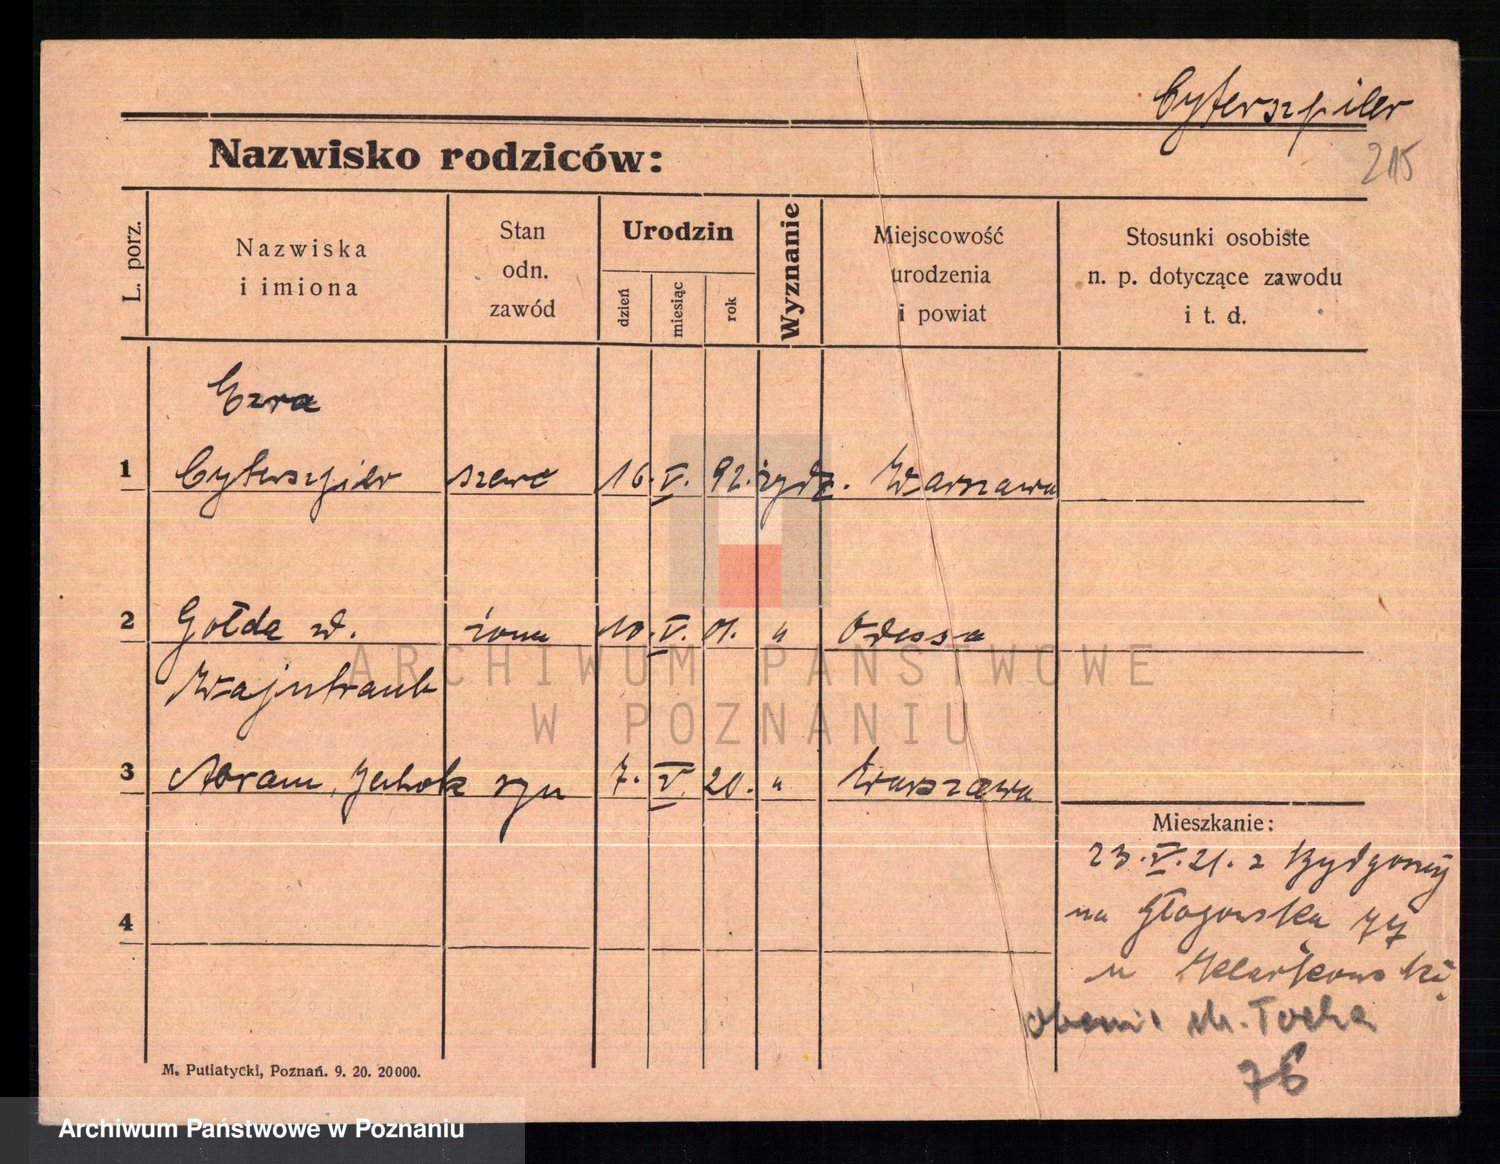 Cyterszpiler
215
Nazwisko rodziców:
L. porz.
Nazwiska
i imiona
Stan
odn.
zawód
Urodzin
dzień
miesiąc
rok
Wyznanie
Miejscowość
urodzenia
i powiat
Stosunki osobiste
n. p. dotyczące zawodu
i t. d.
Ezra
1 Cyterszpiler szewc 16. V. 92. żydz. Warszawa
2 Gołda z d. żona 10. V. 01. " Odessa
Wajntraub
3 Abram, syn 7. V. 20. " Warszawa
Mieszkanie:
23. V. 21. z Bydgoszczy
na Głogowska 77
u
4
obecni
76
M. Putiatycki, Poznań. 9. 20. 20000.
ARCHIWUM PAŃSTWOWE
W POZNANIU
Archiwum Państwowe w Poznaniu